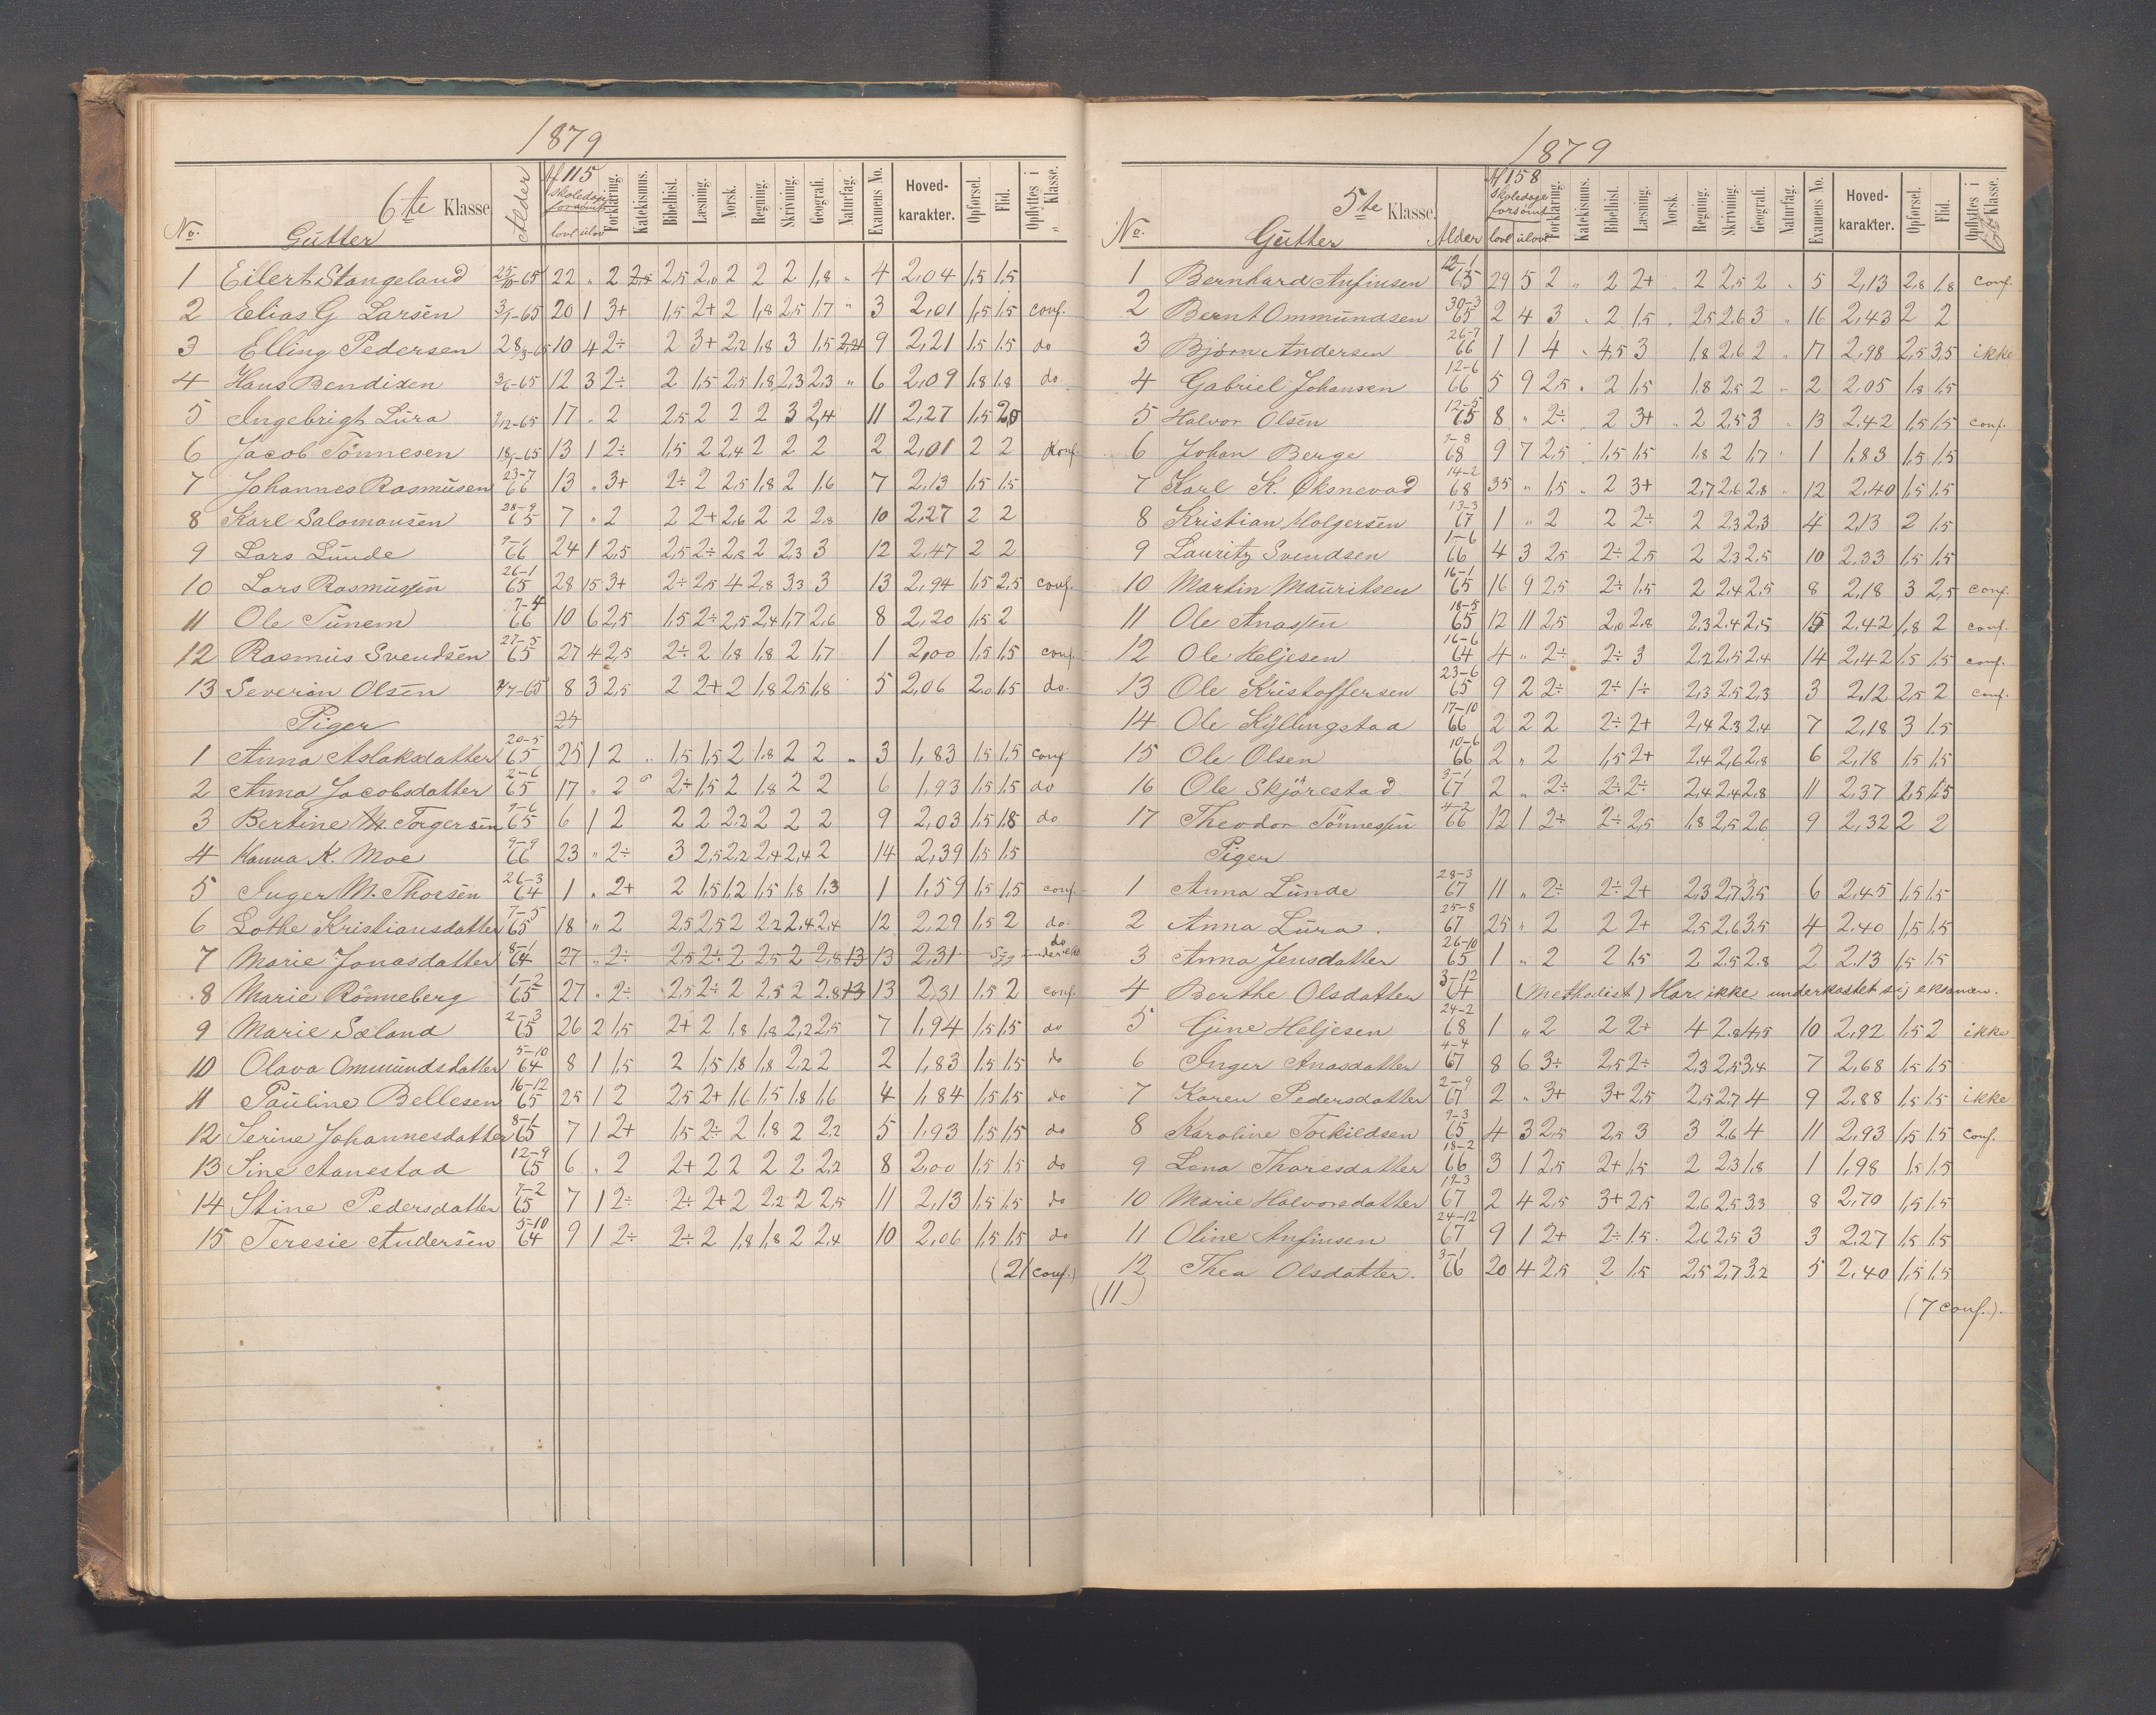 1879
No. 6te Klasse Alder Af 115 skoledage forsømt lovl ulov Forklaring. Katekismus. Bibelhist. Læsning. Norsk. Regning. Skrivning. Geografi. Naturfag. Examens No. Hoved-karakter. Opførsel. Flid. Opflyttes i " Klasse.
Gutter
1 Eilert Stangeland 25/10-65 22 " 2 2,5 2,5 2,0 2 2 2 1,8 " 4 2,04 1,5 1,5
2 Elias G Larsen 3/1-65 20 1 3+ 1,5 2+ 2 1,8 2,5 1,7 " 3 2,01 1,5 1,5 conf.
3 Elling Pedersen 28/3-65 10 4 2÷ 2 3+ 2,2 1,8 3 1,5 9 2,21 1,5 1,5 do
4 Hans Bendixen 3/6-65 12 3 2÷ 2 1,5 2,5 1,8 2,3 2,3 " 6 2,09 1,8 1,8 do
5 Ingebrigt Lura 2/12-65 17 " 2 2,5 2 2 2 3 2,4 11 2,27 1,5 2,0
6 Jacob Tönnesen 18/1-65 13 1 2÷ 1,5 2 2,4 2 2 2 2 2,01 2 2 conf.
7 Johannes Rasmusen 23-7 66 13 " 3+ 2÷ 2 2,5 1,8 2 1,6 7 2,13 1,5 1,5
8 Karl Salomonsen 28-9 65 7 " 2 2 2+ 2,6 2 2 2,8 10 2,27 2 2
9 Lars Lunde 7-1 66 24 1 2,5 2,5 2÷ 2,8 2 2,3 3 12 2,47 2 2
10 Lars Rasmussen 26-1 65 28 15 3+ 2÷ 2,5 4 2,8 3,3 3 13 2,94 1,5 2,5 conf.
11 Ole Tunem 7-4 66 10 6 2,5 1,5 2÷ 2,5 2,4 1,7 2,6 8 2,20 1,5 2
12 Rasmus Svendsen 27-5 65 27 4 2,5 2÷ 2 1,8 1,8 2 1,7 1 2,00 1,5 1,5 conf
13 Severin Olsen 7/7-65 8 3 2,5 2 2+ 2 1,8 2,5 1,8 5 2,06 2,0 1,5 do.
Piger 25
1 Anna Aslaksdatter 20-5 65 25 1 2 " 1,5 1,5 2 1,8 2 2 " 3 1,83 1,5 1,5 conf
2 Anna Jacobsdatter 2-6 65 17 " 2 " 2÷ 1,5 2 1,8 2 2 6 1,93 1,5 1,5 do
3 Bertine M. Torgersen 9-6 65 6 1 2 2 2 2,2 2 2 2 9 2,03 1,5 1,8 do
4 Hanna K. Moe 9-9 66 23 " 2÷ 3 2,5 2,2 2,4 2,4 2 14 2,39 1,5 1,5
5 Inger M. Thorsen 26-3 64 1 " 2+ 2 1,5 1,2 1,5 1,8 1,3 1 1,59 1,5 1,5 conf
6 Lothe Kristiansdatter 7-5 65 18 " 2 2,5 2,5 2 2,2 2,4 2,4 12 2,29 1,5 2 do.
7 Marie Jonasdatter 8-1 64 27 " 2÷ 2,5 2÷ 2 2,5 2 2,8 13 13 2,31 do
8 Marie Rönneberg 1-2 65 27 " 2÷ 2,5 2÷ 2 2,5 2 2,8 13 13 2,31 1,5 2 conf.
9 Marie Sæland 2-3 65 26 2 1,5 2+ 2 1,8 1,8 2,2 2,5 7 1,94 1,5 1,5 do
10 Olava Ommundsdatter 5-10 64 8 1 1,5 2 1,5 1,8 1,8 2,2 2 2 1,83 1,5 1,5 do
11 Pauline Bellesen 16-12 65 25 1 2 2,5 2+ 1,6 1,5 1,8 1,6 4 1,84 1,5 1,5 do
12 Serine Johannesdatter 8-1 65 7 1 2+ 1,5 2÷ 2 1,8 2 2,2 5 1,93 1,5 1,5 do
13 Sine Aanestad 12-9 65 6 " 2 2+ 2 2 2 2 2,2 8 2,00 1,5 1,5 do
14 Stine Pedersdatter 7-2 65 7 1 2÷ 2÷ 2+ 2 2,2 2 2,5 11 2,13 1,5 1,5 do
15 Teresie Andersen 5-10 64 9 1 2÷ 2÷ 2 1,8 1,8 2 2,4 10 2,06 1,5 1,5 do
(21 conf.)
1879
No. 5te Klasse. Alder Af 158 skoledage forsømt lovl ulovl Forklaring. Katekismus. Bibelhist. Læsning. Norsk. Regning. Skrivning. Geografi. Naturfag. Examens No. Hoved-karakter. Opførsel. Flid. Opflyttes i 6te Klasse.
Gutter
1 Bernhard Anfinsen 12-1 65 29 5 2 " 2 2+ " 2 2,5 2 " 5 2,13 2,8 1,8 conf.
2 Bernt Ommundsen 30-3 65 2 4 3 " 2 1,5 " 2,5 2,6 3 " 16 2,43 2 2
3 Bjørn Andersen 26-7 66 1 1 4 " 4,5 3 1,8 2,6 2 " 17 2,98 2,5 3,5 ikke
4 Gabriel Johansen 12-6 66 5 9 2,5 " 2 1,5 1,8 2,5 2 " 2 2,05 1,8 1,5
5 Halvor Olsen 12-5 65 8 " 2÷ 2 3+ " 2 2,5 3 " 13 2,42 1,5 1,5 conf.
6 Johan Berge 7-8 68 9 7 2,5 1,5 1,5 1,8 2 1,7 " 1 1,83 1,5 1,5
7 Karl K. Øksnevad 14-2 68 35 " 1,5 " 2 3+ 2,7 2,6 2,8 " 12 2,40 1,5 1,5
8 Kristian Holgersen 13-3 67 1 " 2 2 2÷ 2 2,3 2,3 4 2,13 2 1,5
9 Lauritz Svendsen 1-6 66 4 3 2,5 2÷ 2,5 2 2,3 2,5 10 2,33 1,5 1,5
10 Martin Mauritsen 16-1 65 16 9 2,5 2÷ 1,5 2 2,4 2,5 8 2,18 3 2,5 conf.
11 Ole Anassen 18-5 65 12 11 2,5 2,0 2,8 2,3 2,4 2,5 15 2,42 1,8 2 conf.
12 Ole Heljesen 16-6 64 4 " 2÷ 2÷ 3 2,2 2,5 2,4 14 2,42 1,5 1,5 conf.
13 Ole Kristoffersen 23-6 65 9 2 2÷ 2÷ 1÷ 2,3 2,5 2,3 3 2,12 2,5 2 conf.
14 Ole Kyllingstad 17-10 66 2 2 2 2÷ 2+ 2,4 2,3 2,4 7 2,18 3 1,5
15 Ole Olsen 10-6 66 2 " 2 1,5 2+ 2,4 2,6 2,8 6 2,18 1,5 1,5
16 Ole Skjörestad 3-1 67 2 " 2÷ 2÷ 2÷ 2,4 2,4 2,8 11 2,37 2,5 1,5
17 Theodor Tönnessen 4-2 66 12 1 2÷ 2÷ 2,5 1,8 2,5 2,6 9 2,32 2 2
Piger
1 Anna Lunde 28-3 67 11 " 2÷ 2÷ 2+ 2,3 2,7 3,5 6 2,45 1,5 1,5
2 Anna Lura. 25-8 67 25 " 2 2 2+ 2,5 2,6 3,5 4 2,40 1,5 1,5
3 Anna Jensdatter 26-10 65 1 " 2 2 1,5 2 2,5 2,8 2 2,13 1,5 1,5
4 Berthe Olsdatter 3-12 64 (Methodist) Har ikke underkastet sig eksamen.
5 Gine Heljesen 24-2 68 1 " 2 2 2+ 4 2,8 4,5 10 2,92 1,5 2 ikke
6 Inger Anasdatter 4-4 67 8 6 3÷ 2,5 2÷ 2,3 2,5 3,4 7 2,68 1,5 1,5
7 Karen Pedersdatter 2-9 67 2 " 3+ 3+ 2,5 2,5 2,7 4 9 2,88 1,5 1,5 ikke
8 Karoline Torkildsen 9-3 65 4 3 2,5 2,5 3 3 2,6 4 11 2,93 1,5 1,5 conf.
9 Lena Tharesdatter 18-2 66 3 1 2,5 2+ 1,5 2 2,3 1,8 1 1,98 1,5 1,5
10 Marie Halvorsdatter 19-3 67 2 4 2,5 3+ 2,5 2,6 2,5 3,3 8 2,70 1,5 1,5
11 Oline Anfinsen 24-12 67 9 1 2+ 2÷ 1,5 2,6 2,5 3 3 2,27 1,5 1,5
12 Thea Olsdatter. 3-1 66 20 4 2,5 2 1,5 2,5 2,7 3,2 5 2,40 1,5 1,5
(11)
(7 conf.).